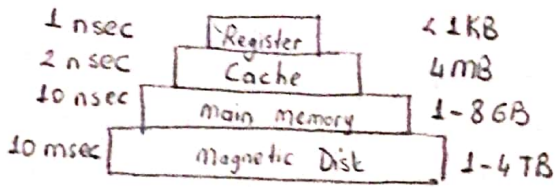 1 nsec Register < 1KB
2 nsec Cache 4MB
10 nsec Main Memory 1-8 GB
10 msec Magnetic Disk 1-4 TB